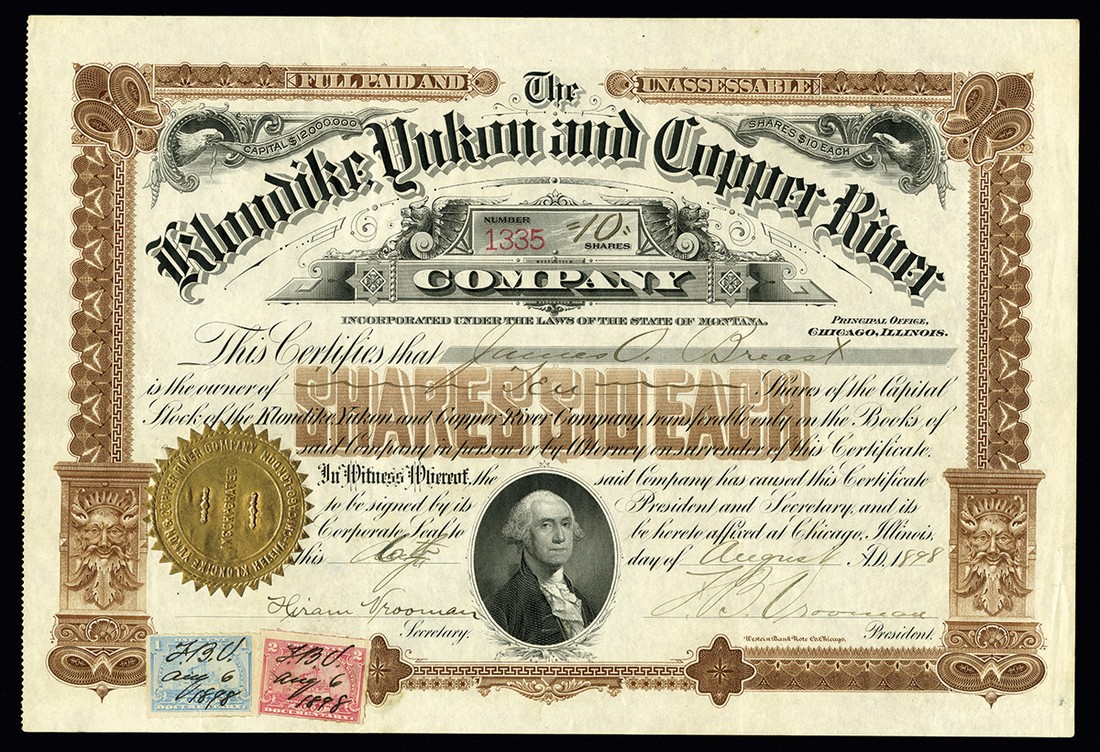 FULL PAID AND
UNASSESSABLE
The
CAPITAL $12,000,000
SHARES $10 EACH
Klondike, Yukon and Copper River
NUMBER
1335
"10"
SHARES
COMPANY
INCORPORATED UNDER THE LAWS OF THE STATE OF MONTANA.
PRINCIPAL OFFICE,
CHICAGO, ILLINOIS.
This Certifies that James O. Breast X
is the owner of Ten Shares of the Capital
SHARES $10 EACH
Stock of the Klondike, Yukon and Copper River Company, transferable only on the Books of
said Company in person or by Attorney on surrender of this Certificate.
In Witness Whereof, the said Company has caused this Certificate
to be signed by its President and Secretary, and its
Corporate Seal to be hereto affixed at Chicago, Illinois,
this day of August A.D. 1898
Hiram Vrooman
Secretary.
F. B. Vrooman
President.
Western Bank Note Co. Chicago.
KLONDIKE YUKON & COPPER RIVER COMPANY
INCORPORATED
F.B.V.
Aug 6
1898
DOCUMENTARY
2 2
F.B.V.
Aug 6
1898
DOCUMENTARY